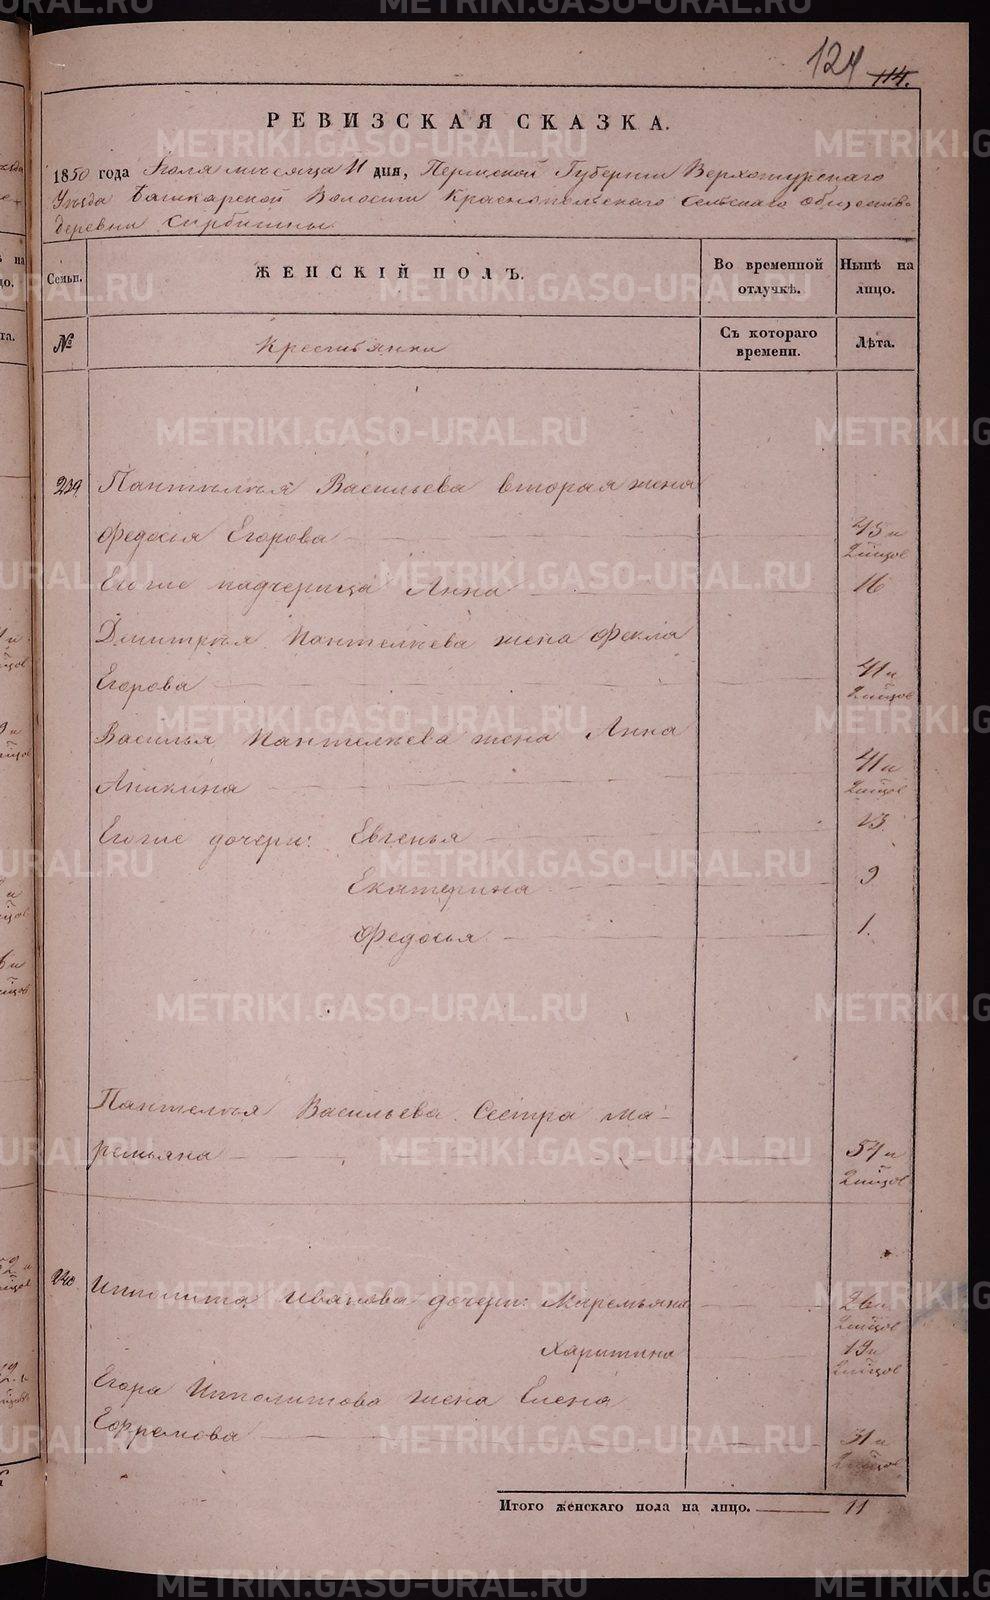 124 114.
РЕВИЗСКАЯ СКАЗКА.
1850 года Іюля мѣсяца 11 дня, Пермской Губерніи Верхотурскаго
Уѣзда Башкарской Волости Краснопольскаго сельскаго общества
деревни
Семьи. ЖЕНСКІЙ ПОЛЪ. Во временной отлучкѣ. Нынѣ на лицо.
№ Крестьянки Съ котораго времени. Лѣта.
239 Пантелѣя Васильева вторая жена
Федосія Егорова 45 и 2 мѣсяцов
Егоже падчерица Анна 16
Дмитрія Пантелѣева жена Фекла
Егорова 41 и 2 мѣсяцов
Василья Пантелѣева жена Анна
Аникина 41 и 2 мѣсяцов
Егоже дочери: Евгенья 13
Екатерина 9
Федосья 1.
Пантелѣя Васильева Сестра Ма-
ремьяна 54 и 2 мѣсяцов
240 Ипполита Иванова дочери: Маремьяна 26 и 2 мѣсяцов
Харитина 19 и 2 мѣсяцов
Егора Ипполитова жена Елена
Ефремова 31 и 2 мѣсяцов
Итого женскаго пола на лицо. 11
METRIKI.GASO-URAL.RU